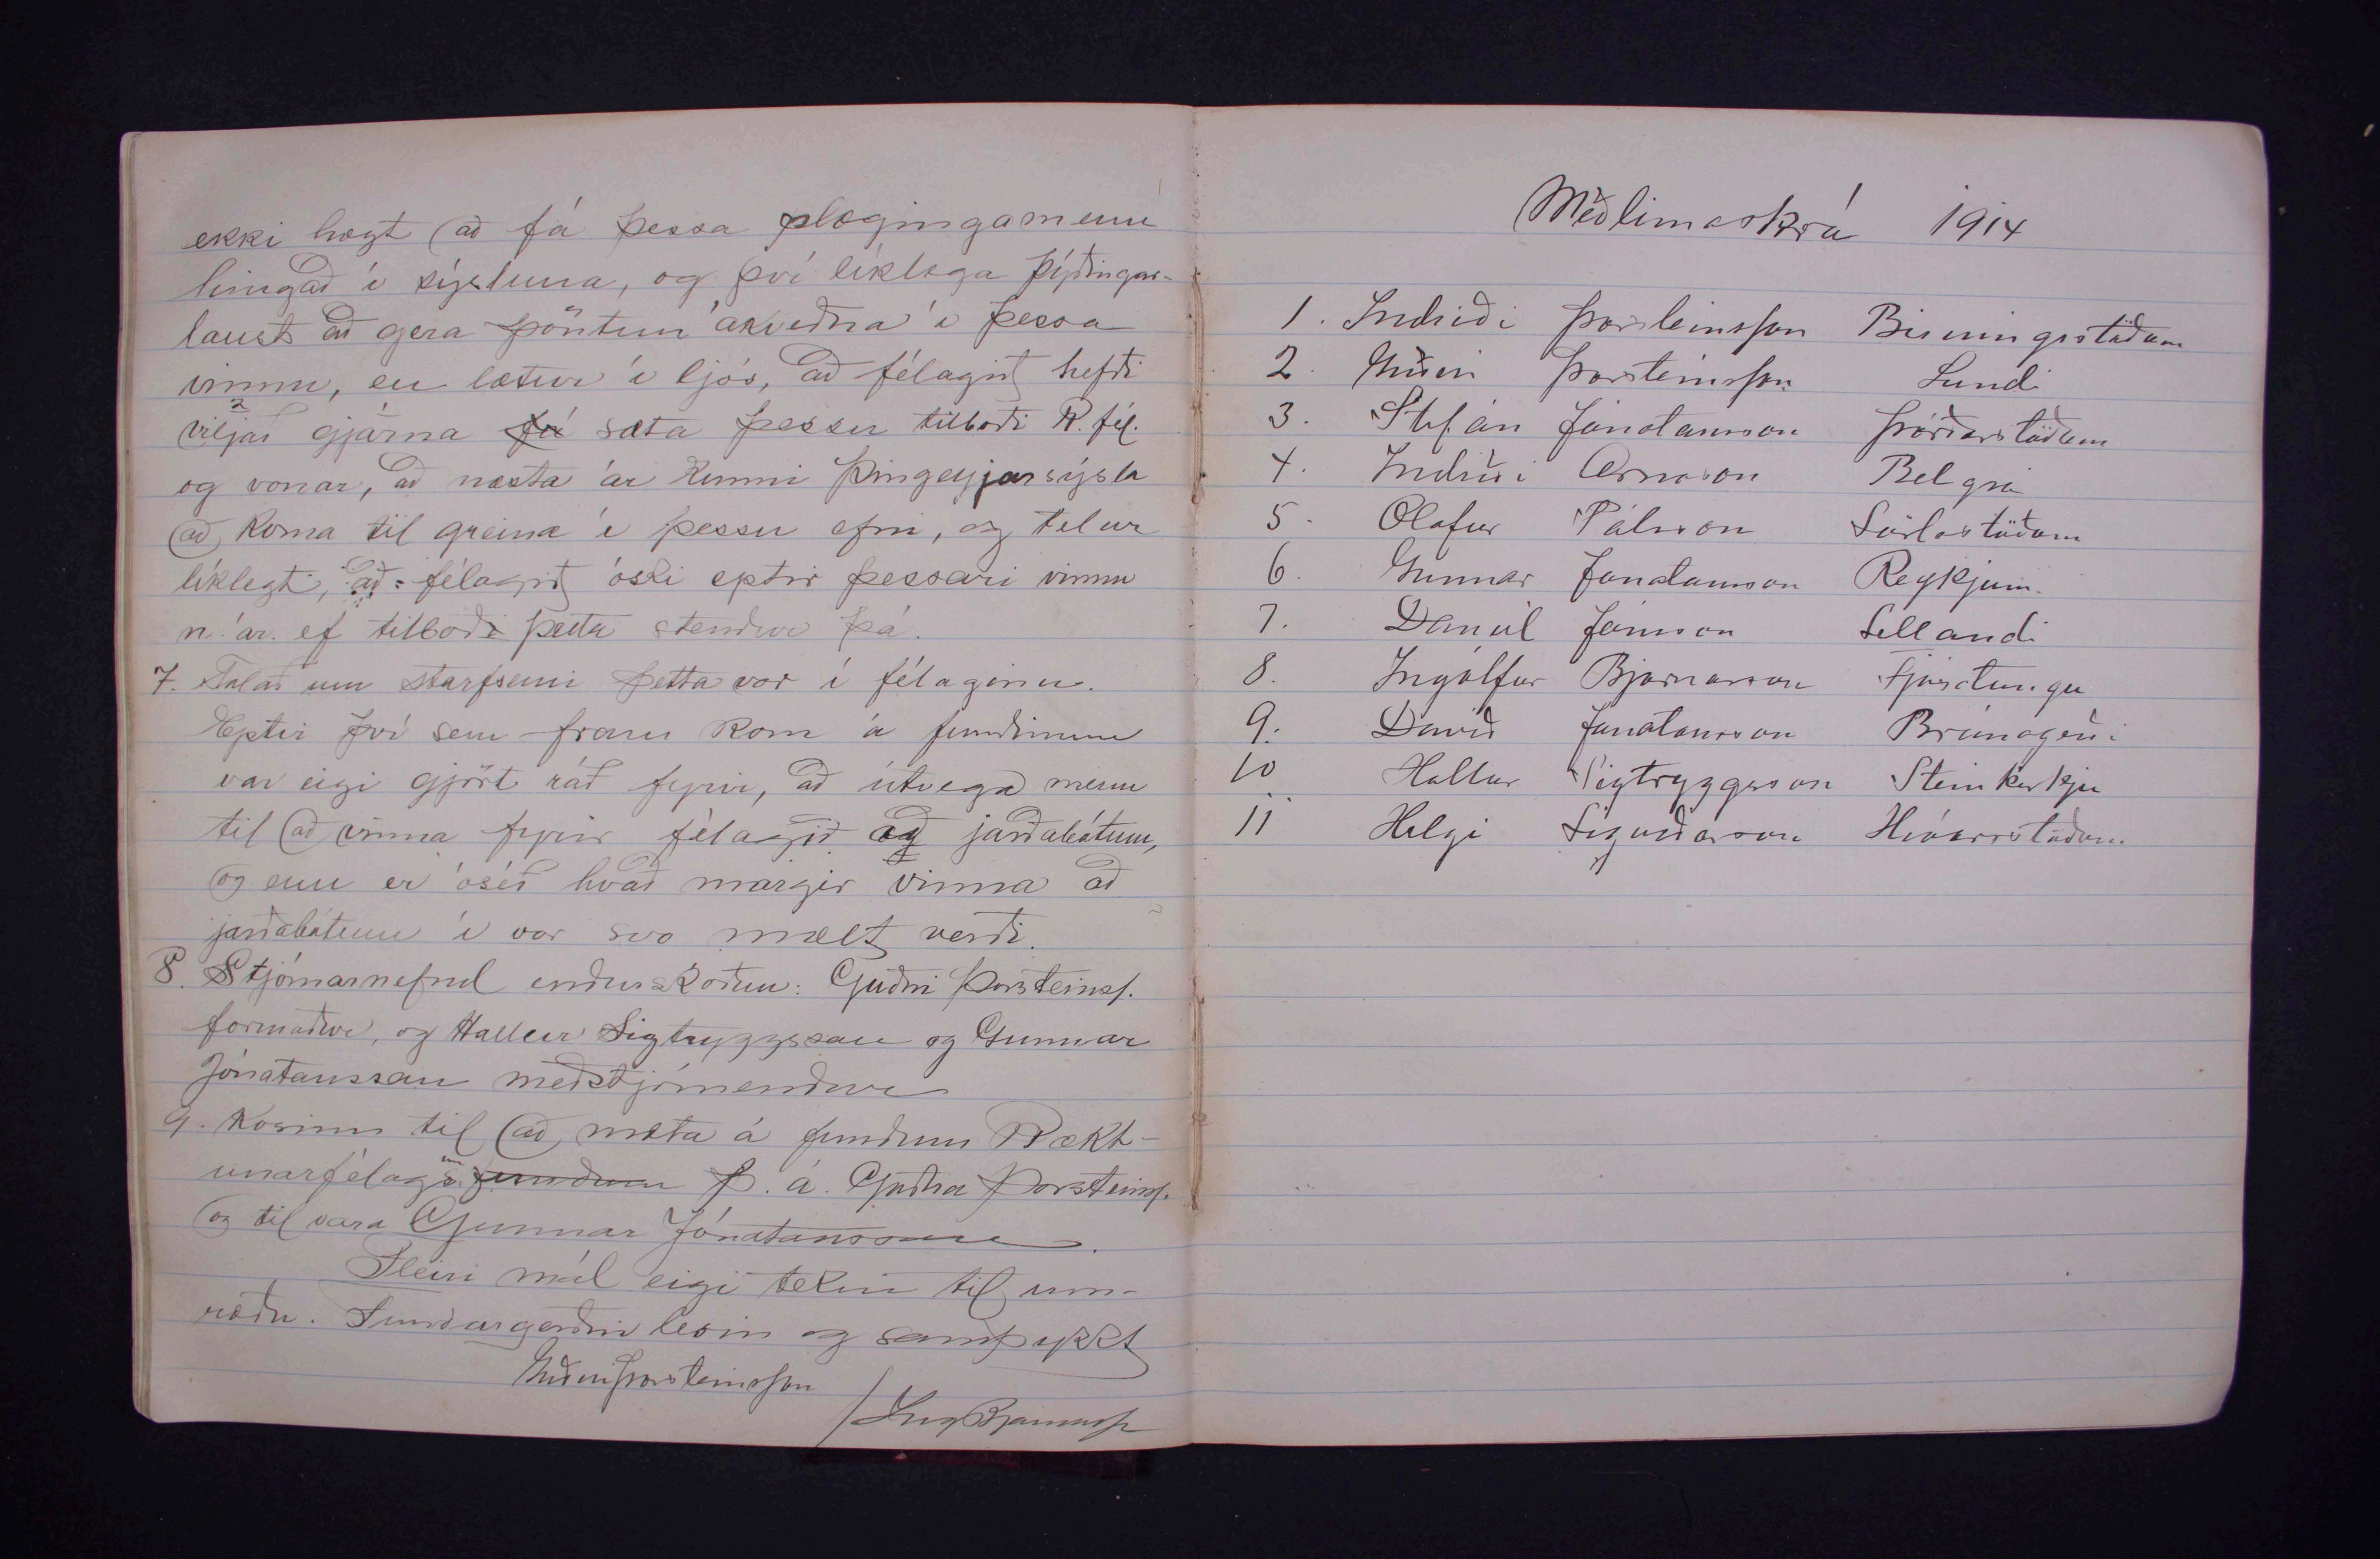 ekki hægt að fá þessa plægingamenn
hingað í sýsluna, og því líklega þýðingar-
laust að gera pöntun ákveðna í þessa
vinnu, en lætur í ljós, að félagið hefði
viljað gjarna fá sæta þessu tilboði R. fél.
og vonar, að næsta ár kunni Þingeyjarsýsla
að koma til greina í þessu efni, og telur
líklegt, að félagið óski eptir þessari vinnu
n. ár. ef tilboð þetta stendur þá.
7. Talað um starfsemi þetta vor í félaginu.
Eptir því sem fram kom á fundinum
var eigi gjört ráð fyrir, að útvega menn
til að vinna fyrir félagið að jarðabótum,
og enn er óséð hvað margir vinna að
jarðabótum í vor svo mælt verði.
8. Stjórnarnefnd endurskoðun: Guðni Þorsteinss.
formaður, og Hallur Sigtryggsson og Gunnar
Jónatansson meðstjórnendur
9. Kosinn til að mæta á fundum Rækt-
unarfélags fundum þ. á. Guðna Þorsteinss.
og til vara Gunnar Jónatansson.
Fleiri mál eigi tekin til um-
ræðu. Fundargerðin lesin og samþykkt
Guðni Þorsteinsson
/ Ing Bjarnarson
Meðlimaskrá 1914
1. Indriði Þorsteinsson Birningsstöðum
2. Guðni Þorsteinsson Lundi
3. Stefán Jónatansson Þórðarstöðum
4. Indriði Arnason Belgsá
5. Olafur Pálsson Sörlastöðum
6. Gunnar Jónatansson Reykjum.
7. Daníel Jónsson Sellandi
8. Ingólfur Bjarnarson Fjósatungu
9. Davíð Jónatansson Brúnagerði
10 Hallur Sigtryggsson Steinkirkju
11 Helgi Sigurðarson Hróarsstöðum